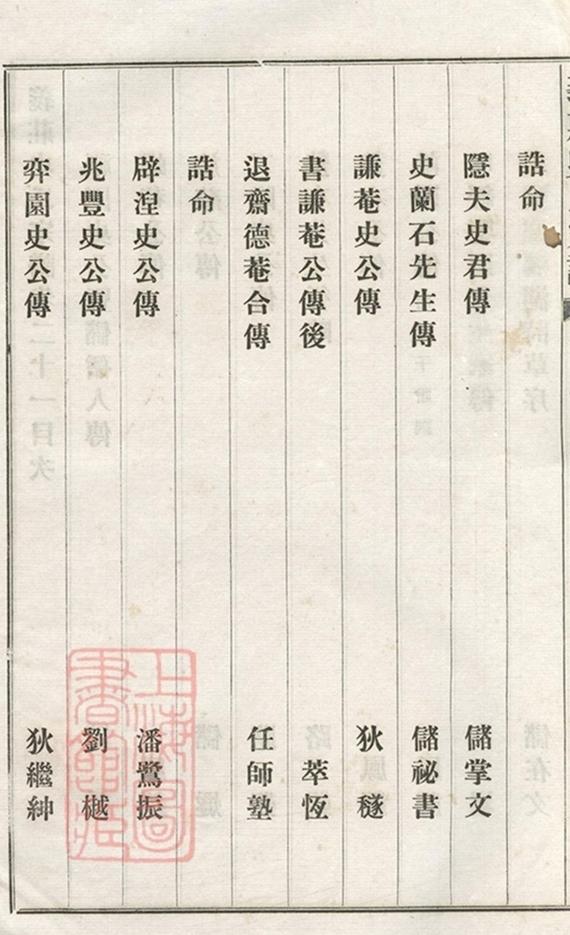 誥命
隱夫史君傳 儲掌文
史蘭石先生傳 儲祕書
謙菴史公傳 狄穟
書謙菴公傳後 萃恆
退齋德菴合傳 任師塾
誥命
辟湼史公傳 潘鷺振
兆豐史公傳 劉樾
弈園史公傳 狄繼紳
上海圖書館藏